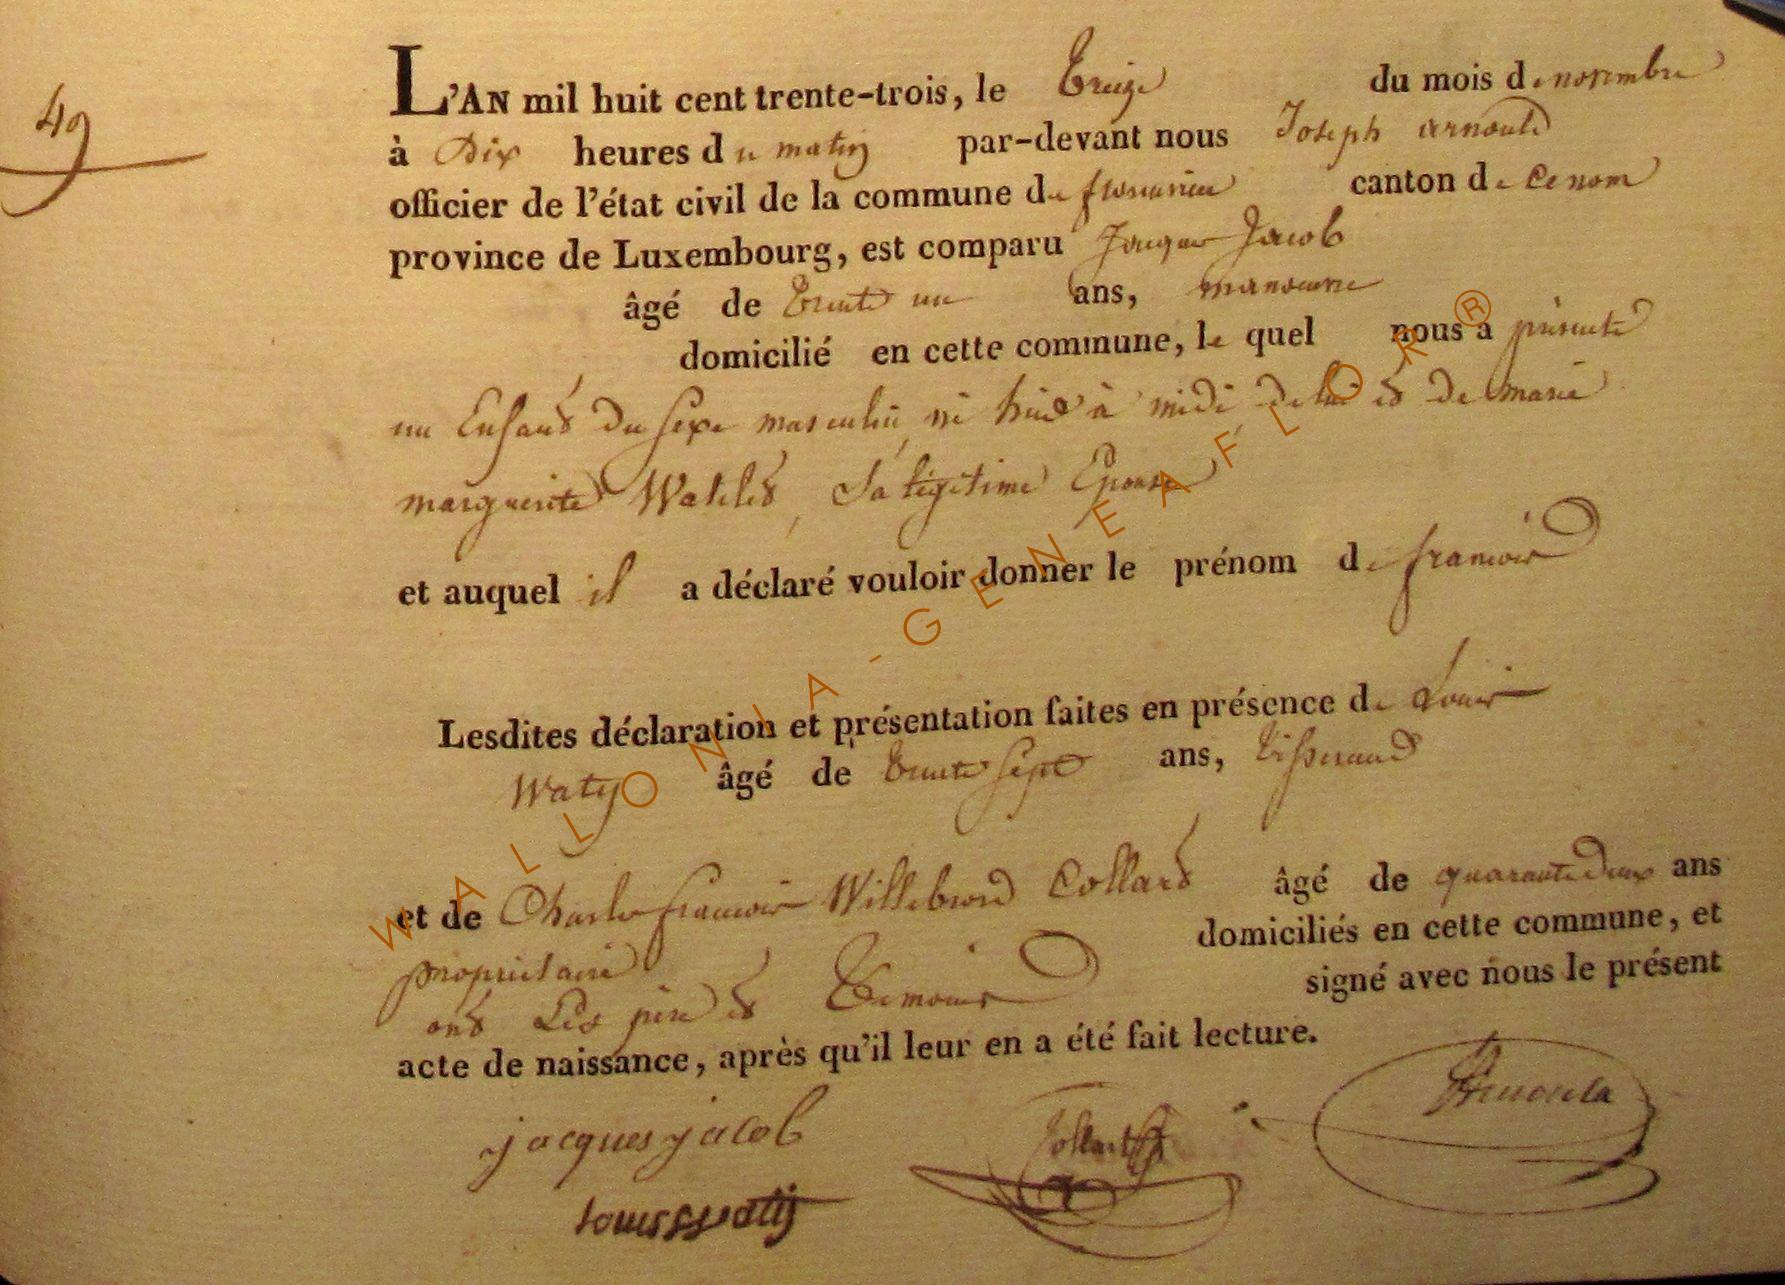 49
L'AN mil huit cent trente-trois, le treize du mois de novembre
à Dix heures du matin par-devant nous Joseph arnould
officier de l'état civil de la commune de florenville canton de ce nom
province de Luxembourg, est comparu Jacques Jacob
âgé de trente un ans, manoeuvre
domicilié en cette commune, le quel nous a présenté
un Enfant du sexe masculin, né hier à midi, de lui et de marie
marguerite Watelet, Sa légitime Epouse
et auquel il a déclaré vouloir donner le prénom de francois
Lesdites déclaration et présentation faites en présence de Louis
Waty âgé de trente sept ans, tisserand
et de Charles francois Willebrord Collard âgé de quarante deux ans
propriétaire domiciliés en cette commune, et
ont Les père et Temoins signé avec nous le présent
acte de naissance, après qu'il leur en a été fait lecture.
jacques jacob
Collard
louis watij
WALLONIA-GENEAFLOR ®